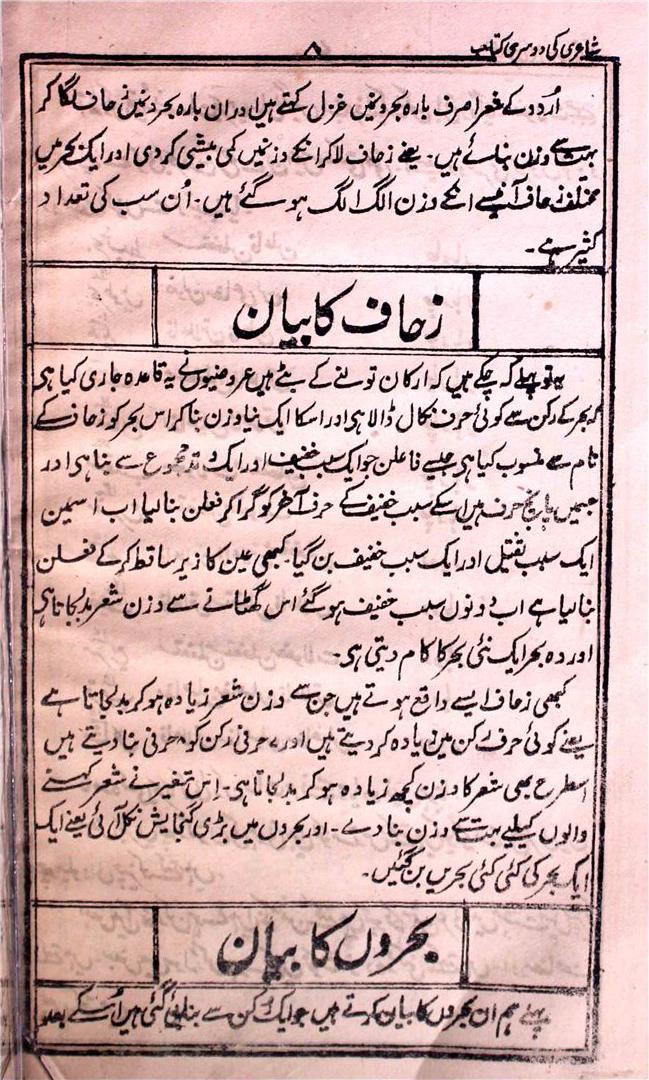 شاعری کی دوسری کتاب
۸
اُردو کے شعرا صرف بارہ بحرونمیں غزل کہتے ہیں اور ان بارہ بحرونمیں زحاف لگا کر
بہت سے وزن بنائے ہیں۔ یعنے زحاف لاکر انکے وزنمیں کمی بیشی کردی اور ایک بحر میں
مختلف زحاف آنیسے انکے وزن الگ الگ ہوگئے ہیں۔ اُن سب کی تعداد
کثیر ہے۔
زحاف کا بیان
یہ تو پہلے کہہ چکے ہیں کہ ارکان تولنے کے بٹے ہیں عروضیوں نے یہ قاعدہ جاری کیا ہی
کہ بحر کے رکن سے کوئی حرف نکال ڈالا ہی اور اسکا ایک نیا وزن بنا کر اس بحر کو زحاف کے
نام سے منسوب کیا ہی جیسے فاعلن جو ایک سبب خفیف اور ایک وتد مجموع سے بنا ہی اور
جسمیں پانچ حرف ہیں اسکے سبب خفیف کے حرف آخر کو گرا کر فعلن بنالیا اب اسمین
ایک سبب ثقیل اور ایک سبب خفیف بن گیا۔ کبھی عین کا زیر ساقط کرکے فعلن
بنالیا ہے اب دونوں سبب خفیف ہوگئے اس گھٹانے سے وزن شعر بدلجاتا ہی
اور وہ بحر ایک نئی بحر کا کام دیتی ہی۔
کبھی زحاف ایسے واقع ہوتے ہیں جن سے وزن شعر زیادہ ہوکر بدلجاتا ہے
یعنے کوئی حرف رکن میں زیادہ کردیتے ہیں اور ۷ حرفی رکن کو ۸ حرفی بنا دیتے ہیں
اسطرح بھی شعر کا وزن کچھ زیادہ ہوکر بدلجاتا ہی۔ اِس تغیر نے شعر کہنے
والوں کیلیے بہت سے وزن بنا دے۔ اور بحروں میں بڑی گنجایش نکل آئی یعنے ایک
ایک بحر کی کئی کئی بحریں بن گئیں۔
بحروں کا بیان
پہلے ہم ان بحروں کا بیان کرتے ہیں جو ایک رُکن سے بنائی گئی ہیں اُسکے بعد